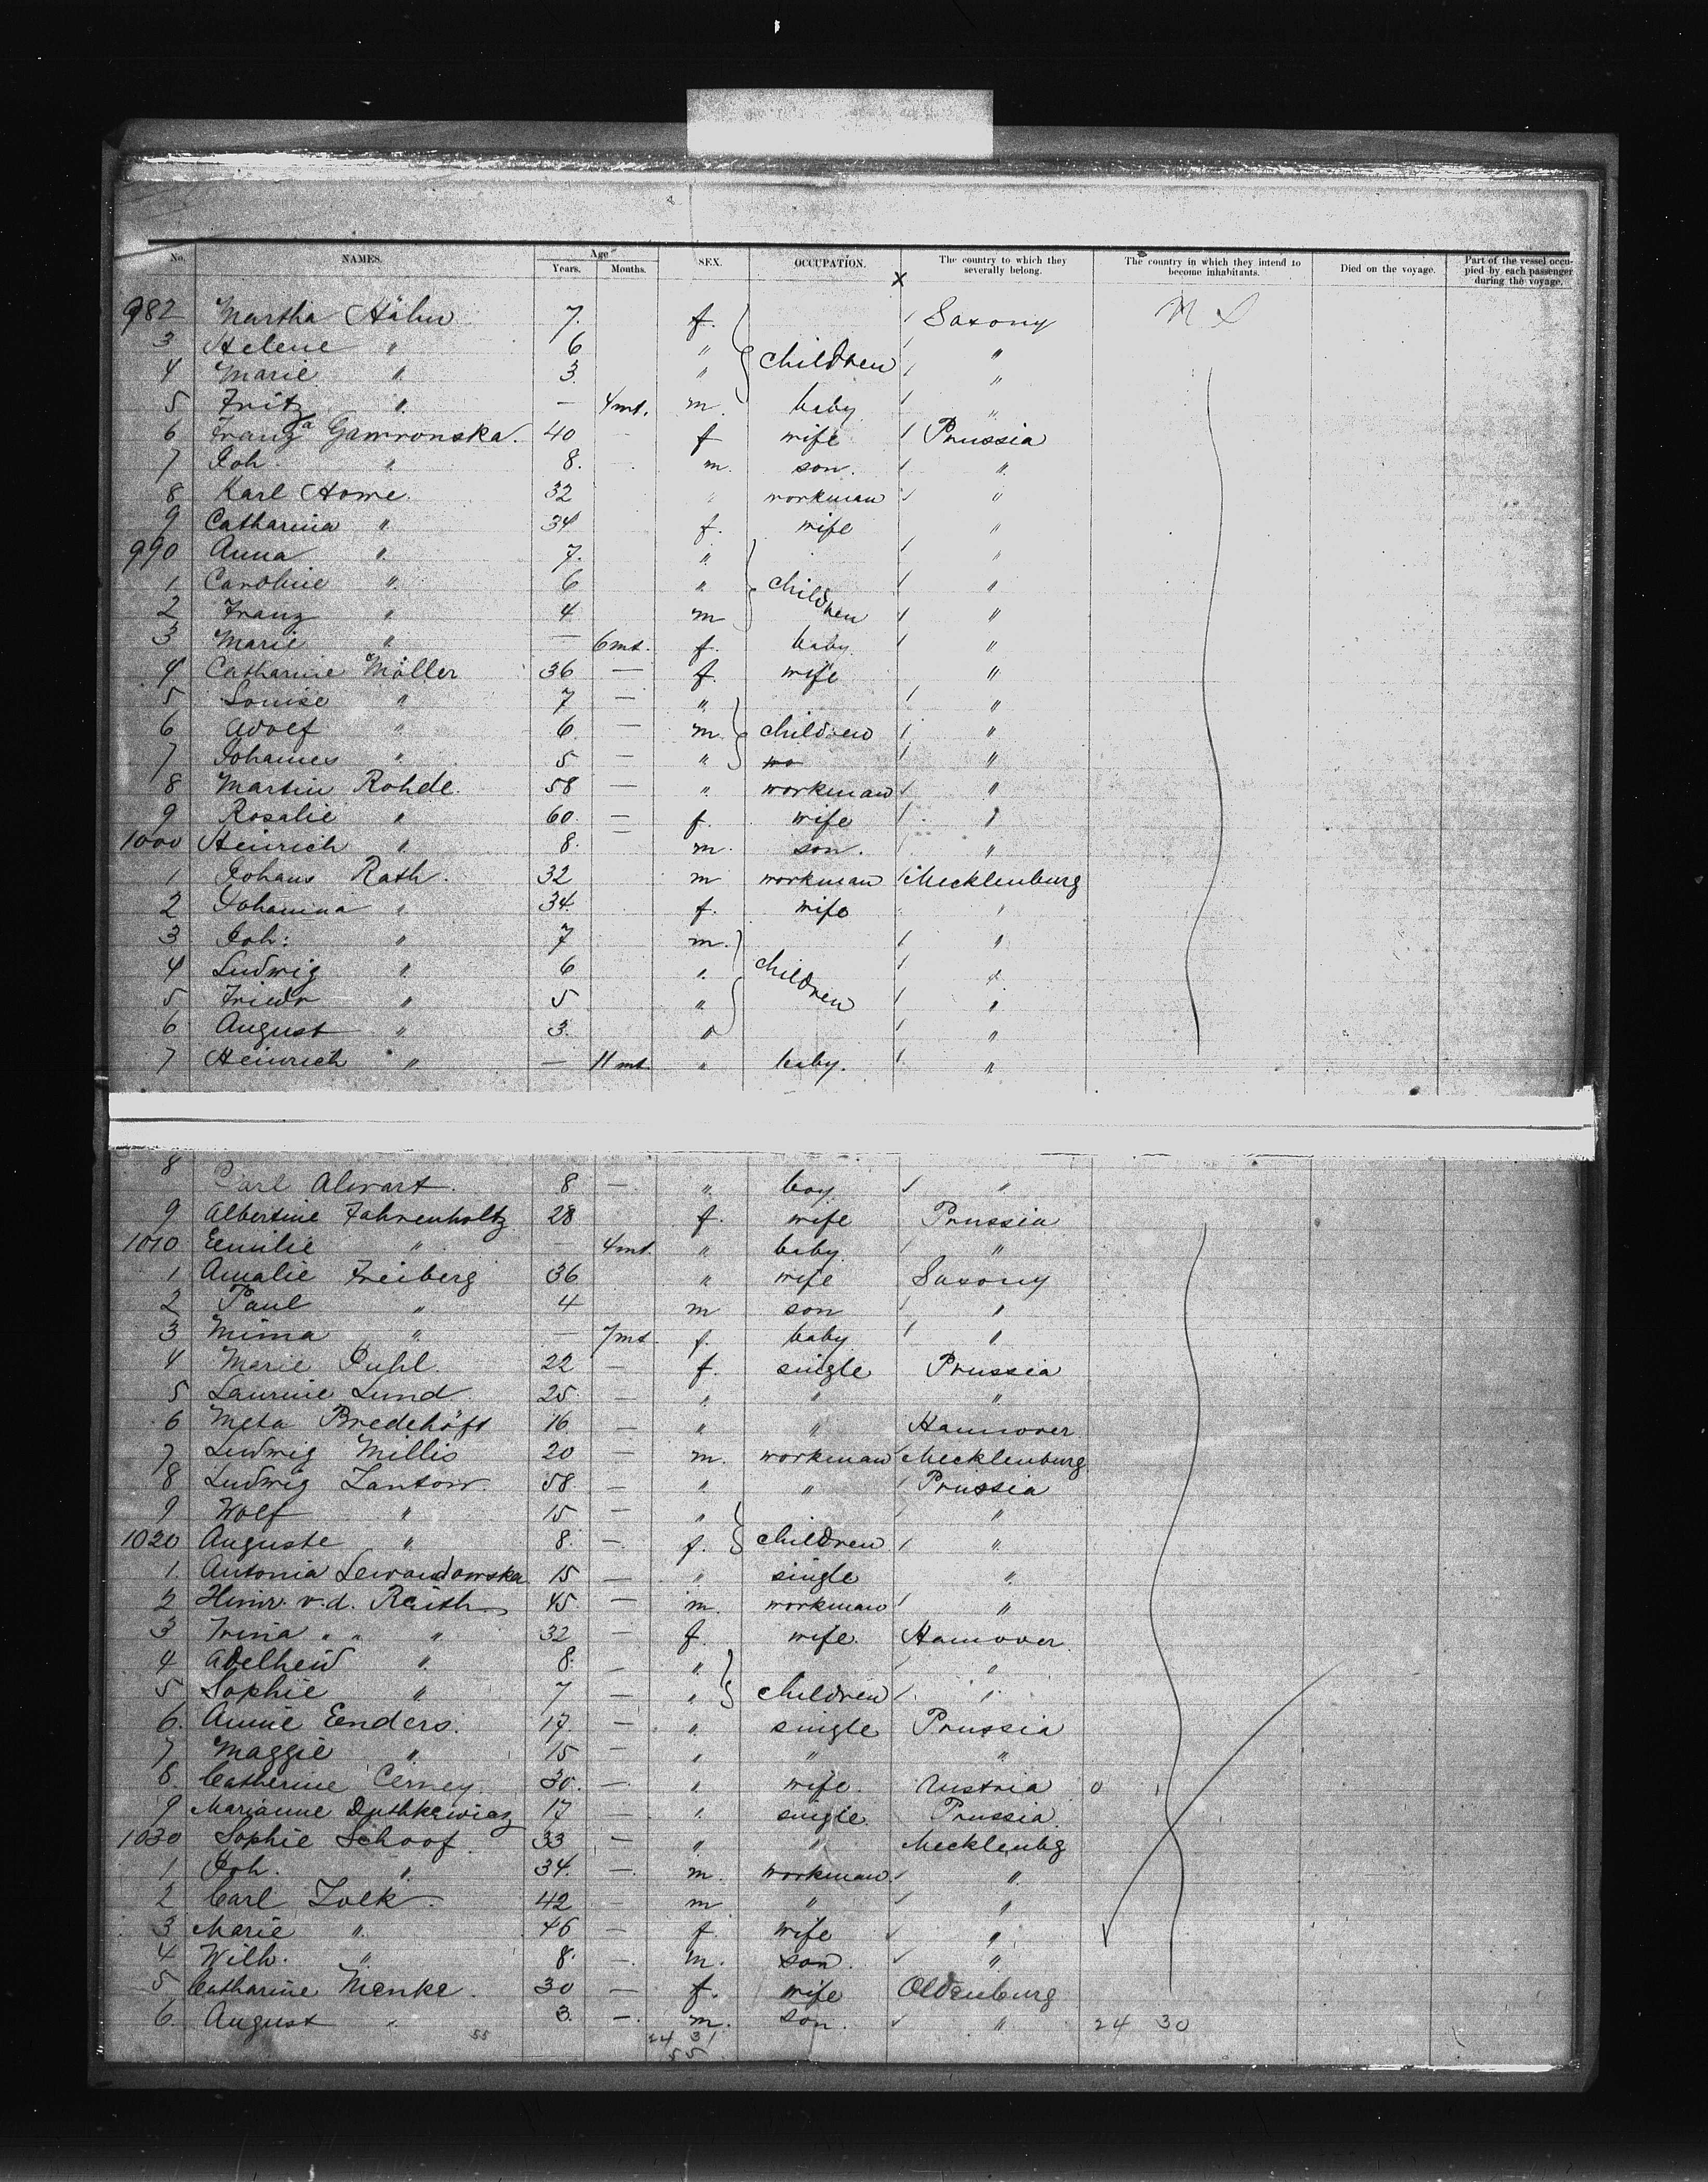 No. NAMES. Age Years. Months. SEX. OCCUPATION. The country to which they severally belong. The country in which they intend to become inhabitants. Died on the voyage. Part of the vessel occupied by each passenger during the voyage.
X
982 Martha Hähn 7. f. Saxony
3 Helene " 6 " children "
4 Marie " 3. " "
5 Fritz " — 4 mt. m. baby "
6 Franz a Gamronska. 40 — f wife Prussia
7 Joh. " 8. — m. son. "
8 Karl Home. 32 " workman "
9 Catharina " 34 f. wife "
990 Anna " 7. " "
1 Caroline " 6 " children "
2 Franz " 4 m "
3 Marie " — 6 mt. f. baby "
4 Catharine Möller 36 — f. wife "
5 Louise " 7 — " "
6 Adolf " 6. — m. children "
7 Johannes " 5 — " wo "
8 Martin Rohde. 58 — " workman "
9 Rosalie " 60. — f. wife "
1000 Heinrich " 8. — m. son. "
1 Johans Rath. 32 m workman Mecklenburg
2 Johanna " 34. f. wife "
3 Joh: " 7 m. "
4 Ludwig " 6 " children "
5 Friedr " 5 " "
6 August " 3. " "
7 Heinrich " — 11 mt. " baby. "
8 Carl Alwart. 8 — " boy "
9 Albertine Fahrenholtz 28 f. wife Prussia
1010 Eemilie " — 4 mt. " baby "
1 Amalie Freiberg 36 " wife Saxony
2 Paul " 4 m son "
3 Minna " — 7 mt. f. baby "
4 Marie Puhl. 22 — f. single Prussia
5 Laurine Lund 25. — " " "
6 Meta Bredehöft 16 — " " Hannover
7 Ludwig Millis 20 — m. workman Mecklenburg
8 Ludwig Lantow. 58. — " " Prussia
9 Wolf " 15 — " "
1020 Auguste " 8. — f. children "
1. Antonia Lewandowska 15 — " single "
2 Hinr. v. d. Reith 45. — m. workman "
3 Trina " " " 32 — f. wife. Hannover.
4 Adelheid " 8. — " "
5 Sophie " 7 — " children "
6. Annie Eenders. 17. — " single Prussia
7 Maggie " 15 — " " "
8. Catherine Cerney. 30. — " wife. Austria 0
9 Marianne Duthkewicz 17 — " single Prussia.
1030 Sophie Schoof. 33 — " " Mecklenbg
1 Joh. " 34. — m. workman "
2 Carl Zolk. 42 — m " "
3 Marie " 46 — f. wife "
4 Wilh. " 8. — m. son. "
5 Catharine Menke. 30 — f. wife Oldenburg
6. August " 3. — m. son. " 24 30
55 24 31
55